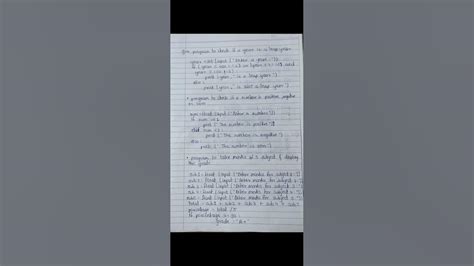 program to check if a year is a leap year
year = int (input ("Enter a year : "))
if (year % 400 == 0) or (year % 4 == 0 and
year % 100 != 0) :
print (year, "is a leap year")
else :
print (year, "is not a leap year")
• program to check if a number is positive, negative
or zero
num = float (input ("Enter a number : "))
if num > 0 :
print ("The number is positive")
elif num < 0 :
print ("The number is negative")
else :
print ("The number is zero")
• program to take marks of 5 subject & display
the grade
sub 1 = float (input ("Enter marks for subject 1 : "))
sub 2 = float (input ("Enter marks for subject 2 : "))
sub 3 = float (input ("Enter marks for subject 3 : "))
sub 4 = float (input ("Enter marks for subject 4 : "))
sub 5 = float (input ("Enter marks for subject 5 : "))
total = sub 1 + sub 2 + sub 3 + sub 4 + sub 5
percentage = total / 5
if percentage >= 90 :
grade = "A+"